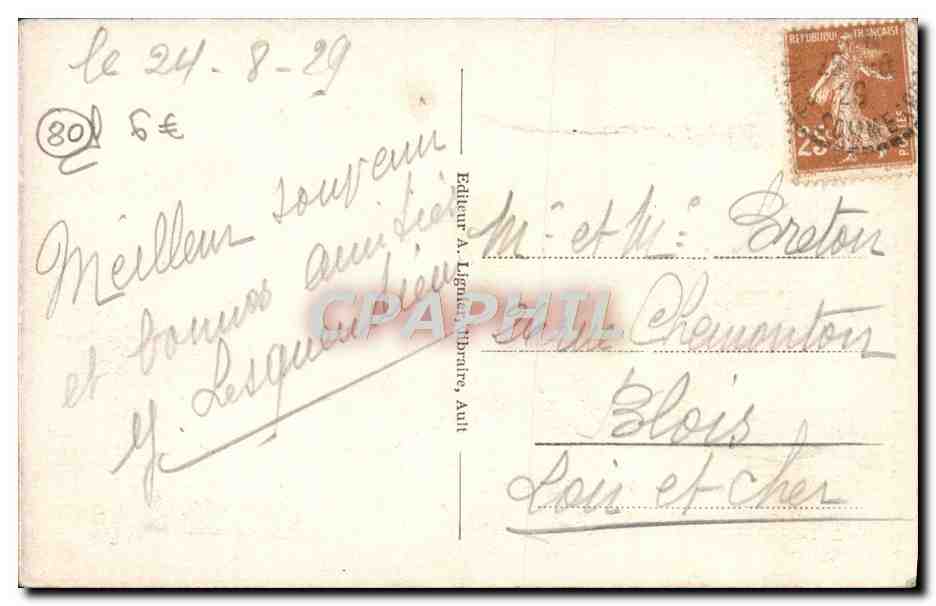 le 24 - 8 - 29
80 6€
Meilleur souvenir
et bonnes amitiés
Y. Lesquendieu
Editeur A. Lignier, libraire, Ault
REPUBLIQUE FRANÇAISE
29
SOMME
25
POSTES
Mr et Me Breton
Chemonton
Blois
Loir et Cher
CPAPHIL